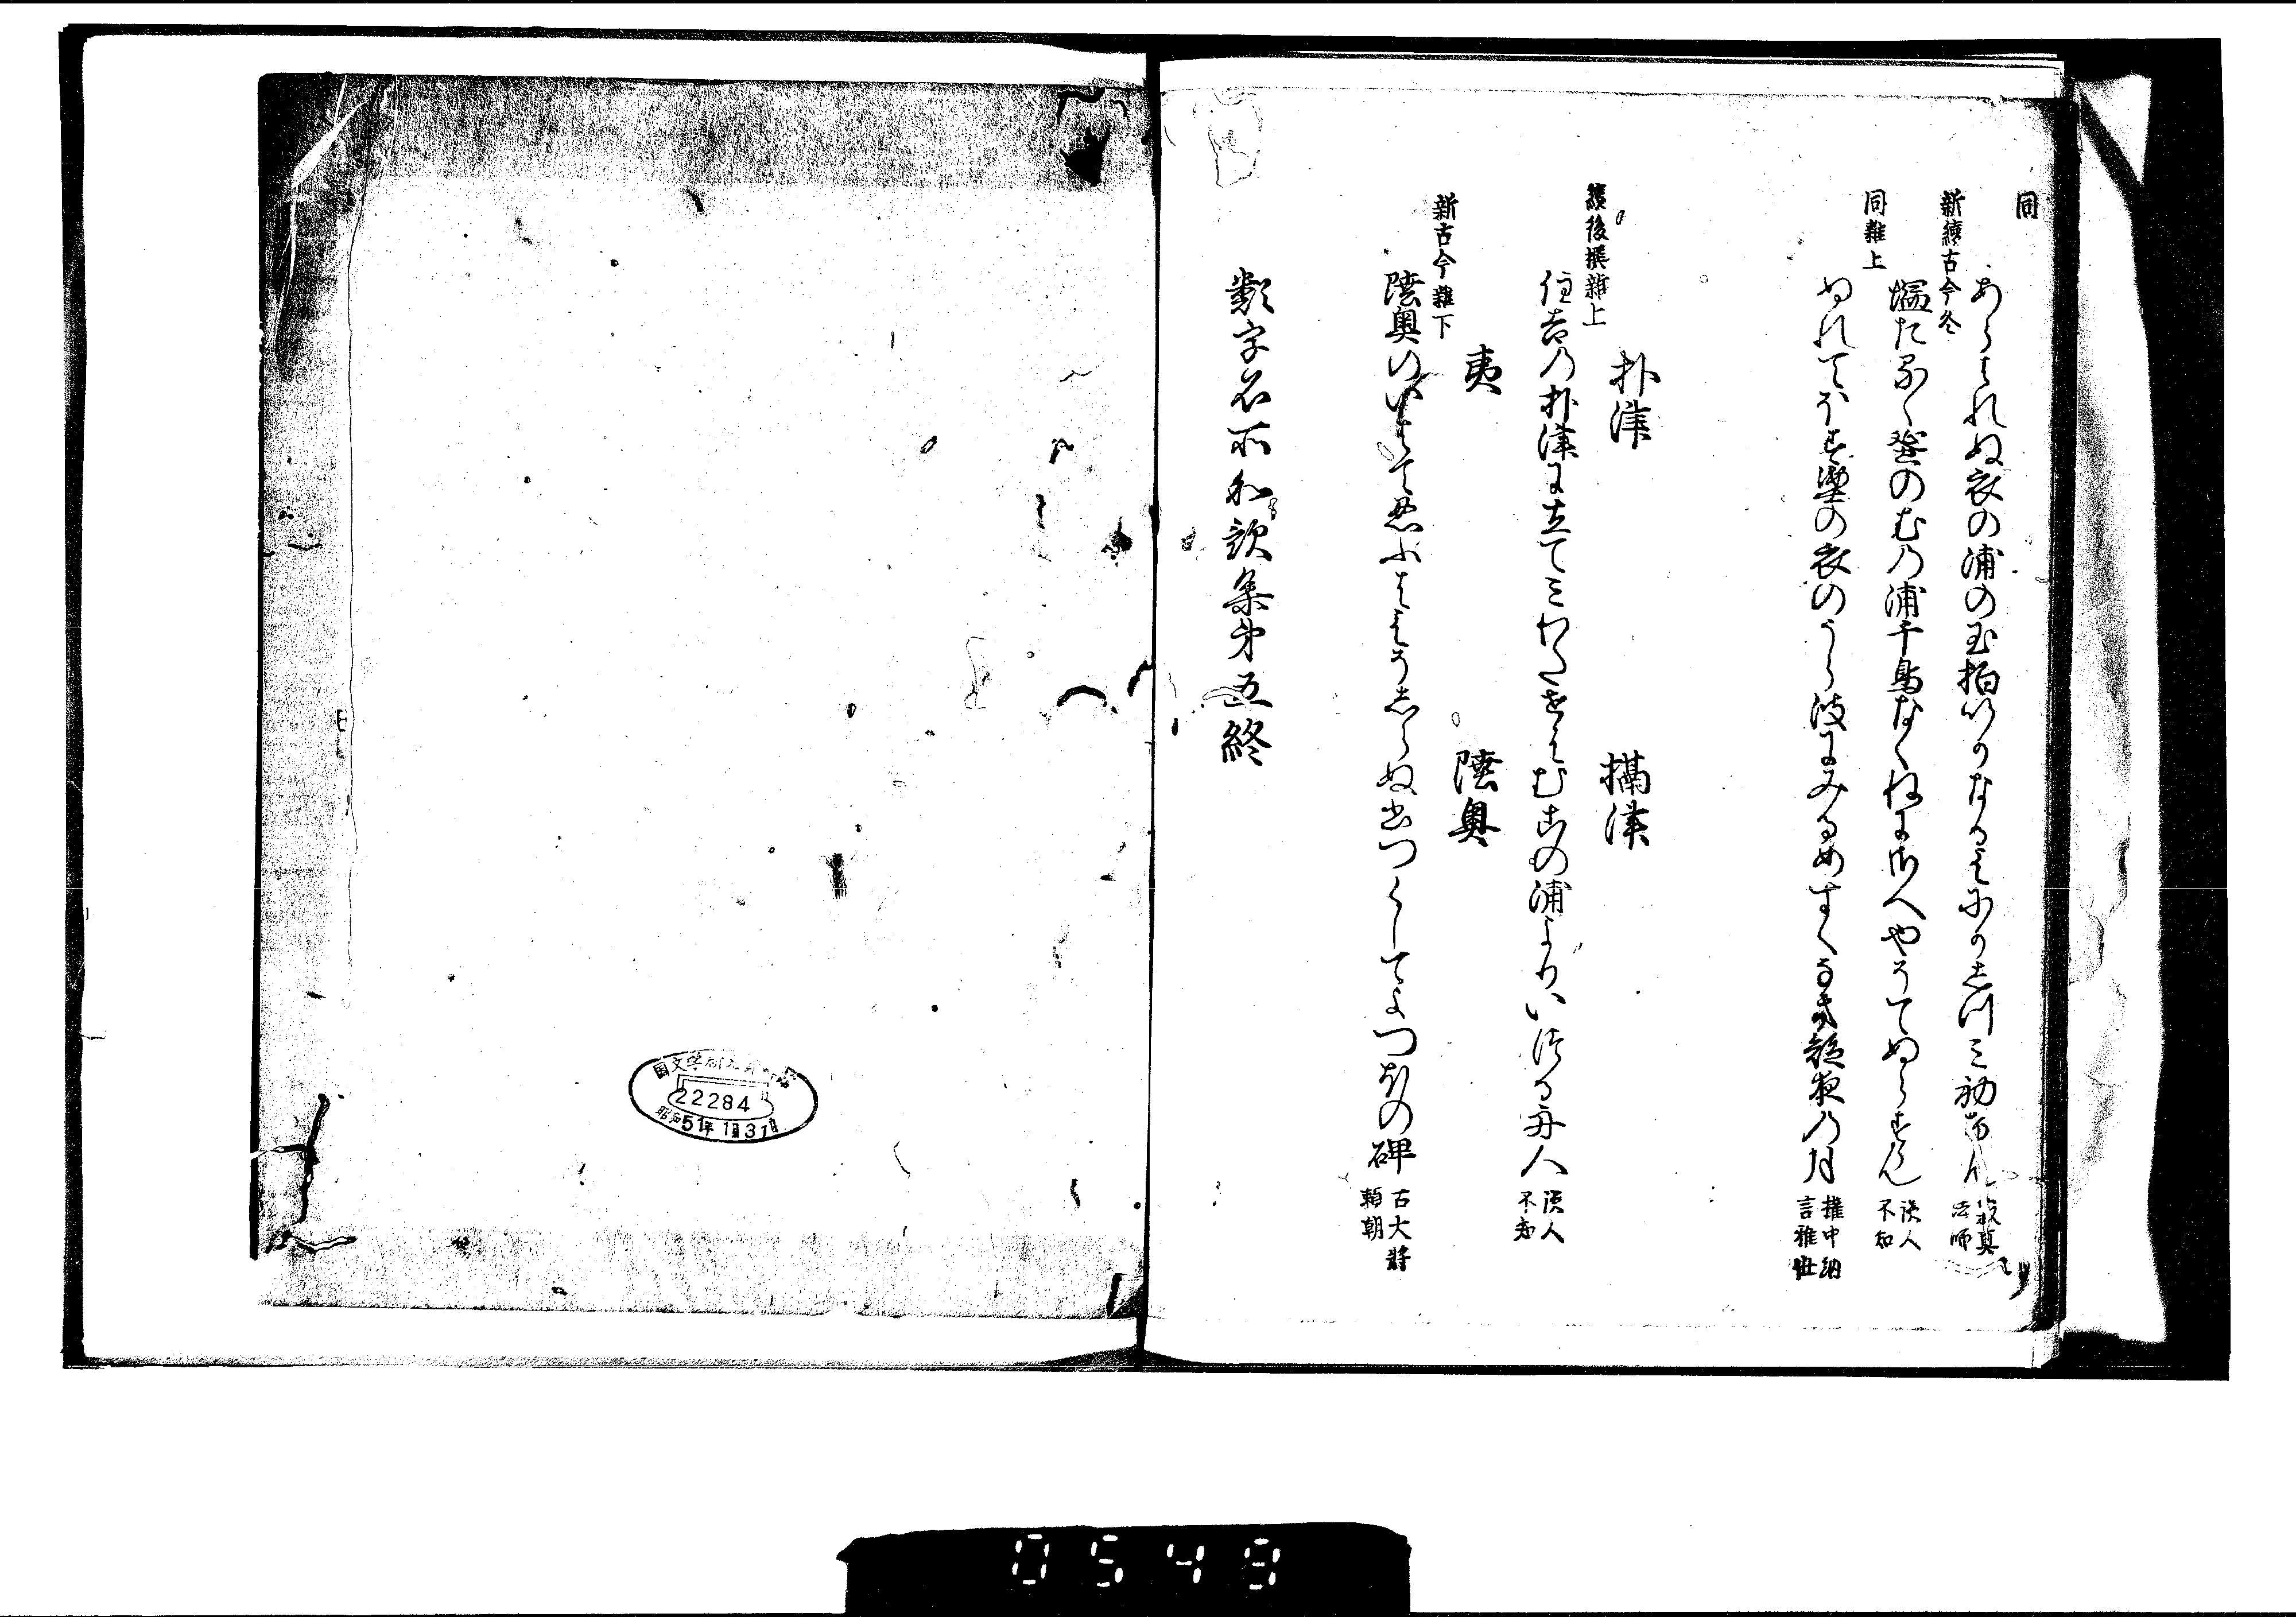 同
あらはれぬ衣の浦の玉柏いかなるえにかしつみ初けん
法師
新續古今冬
塩たるゝ蜑のむの浦千鳥なくねにさへやそてぬらすらん 読人不知
同雜上
ぬれてほす塗の衣のうら波にみるめすくなき朧夜の月 權中納言雅世
朴津 攝津
續後撰雜上
住吉の朴津に立てみわたせはむこの浦よりいつる舟人 読人不知
夷 陸奧
新古今雜下
陸奥のいはて忍ふはえそしらぬ書つくしてよつほの碑 右大將頼朝
類字名所和歌集第五終
国文学研究資料館
22284
昭和51年1月31日
0549